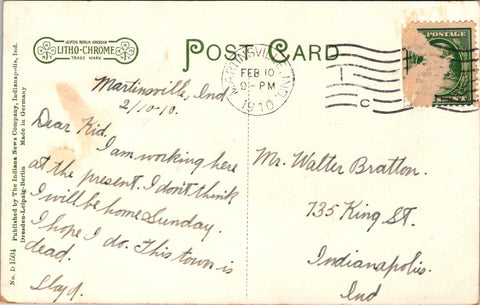 LEIPZIG BERLIN DRESDEN
LITHO-CHROME
TRADE MARK
POST CARD
MARTINSVILLE, IND.
FEB 10
9-PM
1910
C
POSTAGE
No. D 1504 Published by The Indiana News Company, Indianapolis, Ind.
Dresden-Leipzig-Berlin Made in Germany
Martinsville, Ind
2/10-10.
Dear Kid.
I am working here
at the present. I don't think
I will be home Sunday.
I hope I do. This town is
dead.
Lloyd.
Mr. Walter Bratton.
735 King St.
Indianapolis.
Ind